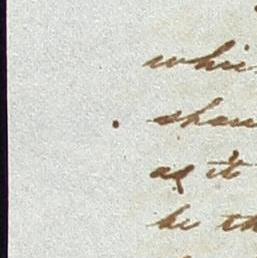 whi
shou
as it
be th